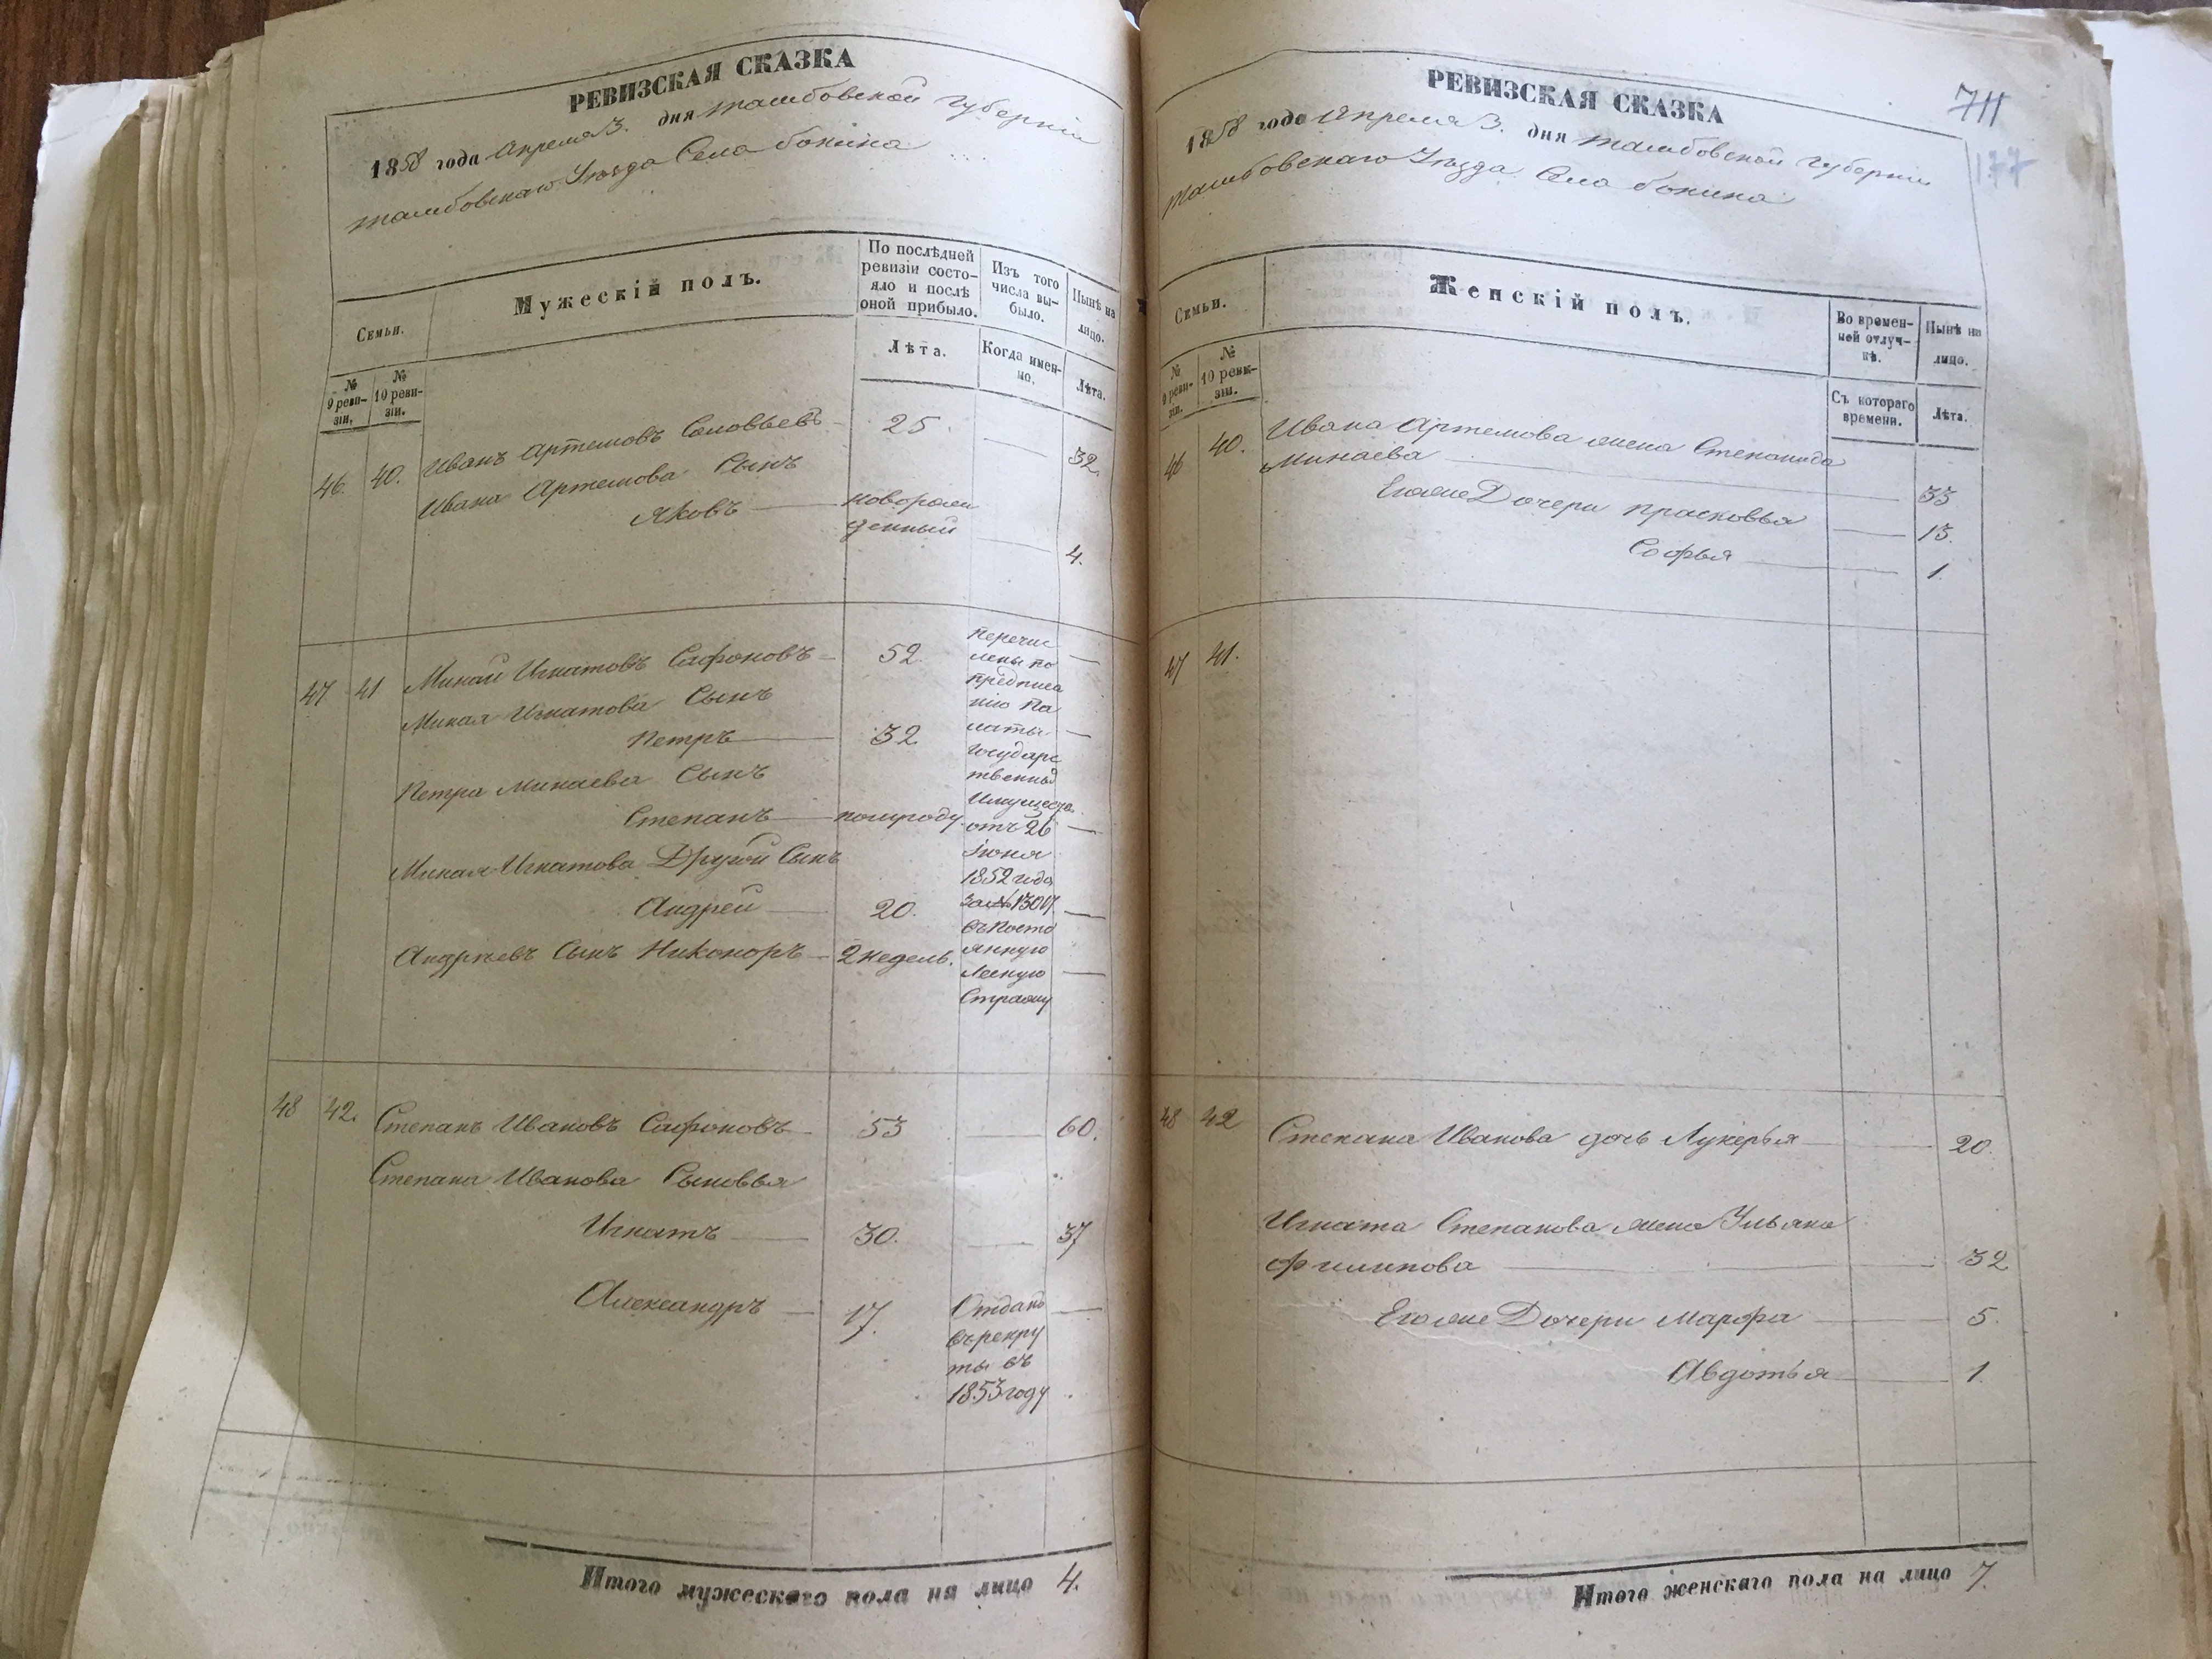 РЕВИЗСКАЯ СКАЗКА
1858 года Апреля 3. дня тамбовской губернiи
тамбовскаго Уѣзда Села бокина
Семьи.
Мужескiй полъ.
По послѣдней ревизiи состояло и послѣ оной прибыло.
Изъ того числа выбыло.
Нынѣ на лицо.
№ 9 ревизiи.
№ 10 ревизiи.
Лѣта.
Когда именно.
Лѣта.
46. 40. Иванъ Артемовъ Соловьевъ 25. 32.
Ивана Артемова Сынъ
Яковъ новорожденный 4.
47 41 Минай Игнатовъ Сафоновъ 52.
Миная Игнатова Сынъ
Петръ 32
Петра Минаева Сынъ
Степанъ полугоду
Миная Игнатова Другой Сынъ
Андрей 20.
Андрѣевъ Сынъ Никоноръ 2 недель.
перечис
лены по
предписа
нiю Па
латы
Государс
твенныхъ
Имуществъ
отъ 26
iюня
1852 года
за №
въ посто
янную
лесную
Стражу
48 42. Степанъ Ивановъ Сафоновъ 53 60.
Степана Иванова Сыновья
Игнатъ 30. 37
Александръ 17.
Отданъ
въ рекру
ты въ
1853 году
Итого мужескаго пола на лицо 4.
РЕВИЗСКАЯ СКАЗКА
711
177
1858 года Апреля 3. дня тамбовской губернiи
тамбовскаго Уѣзда Села бокина
Семьи.
Женскiй полъ.
Во временной отлучкѣ.
Нынѣ на лицо.
№ 9 ревизiи.
№ 10 ревизiи.
Съ котораго времени.
Лѣта.
46 40. Ивана Артемова жена Степанида
Минаева 33
Егоже Дочери Прасковья 13.
Софья 1.
47 41.
48 42 Степана Иванова дочь Лукерья 20.
Игната Степанова жена Ульяна
Филипова 32
Егоже Дочери Марфа 5.
Авдотья 1.
Итого женскаго пола на лицо 7.